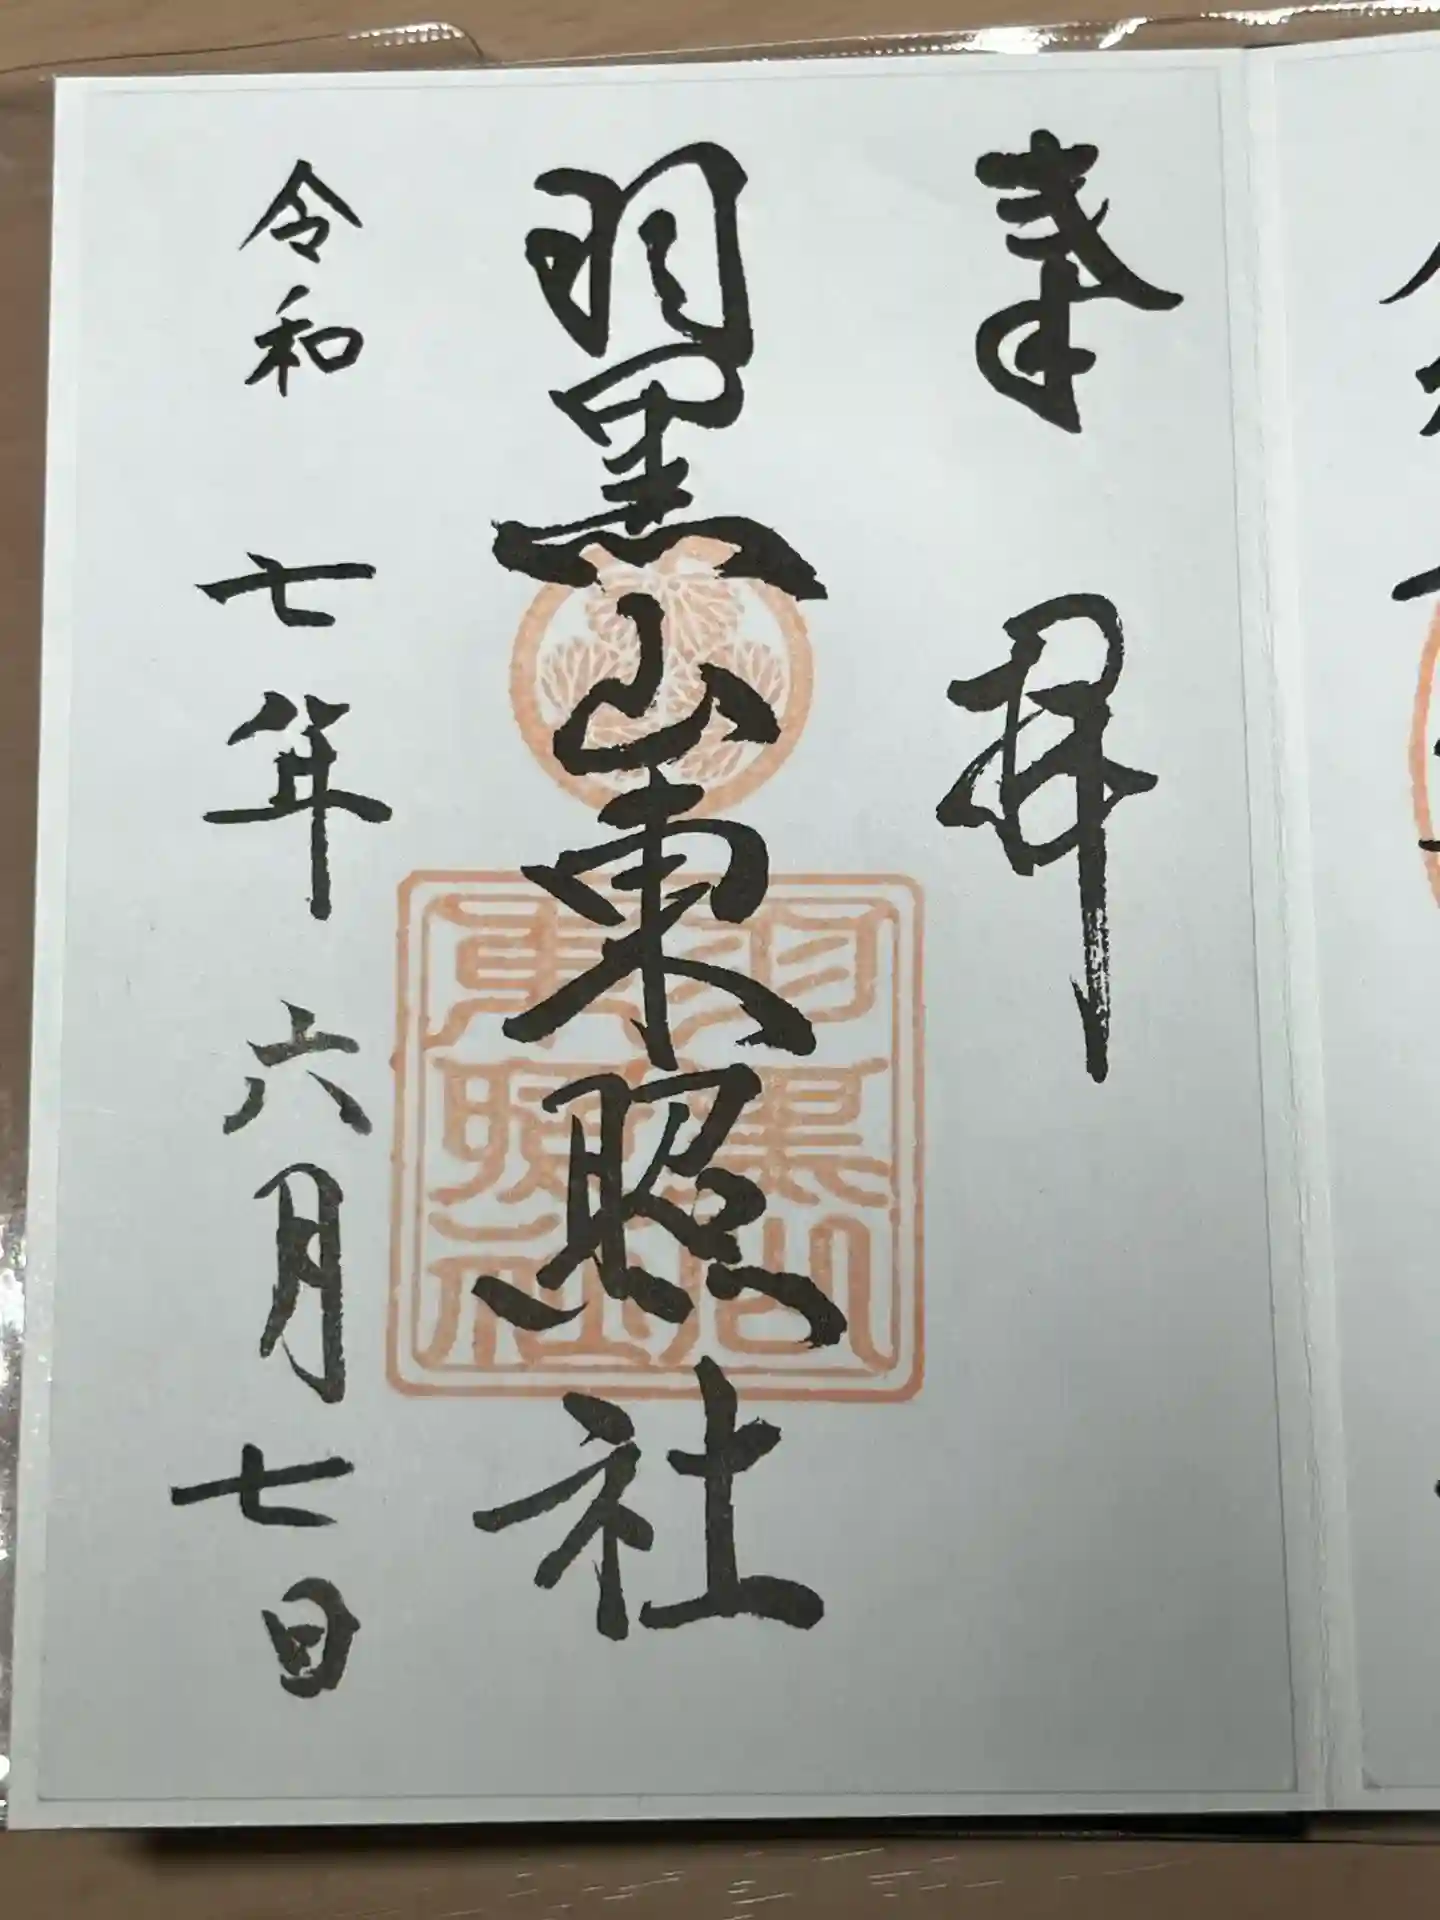 奉拝
羽黒山東照社
羽黒山
東照社
令和七年六月七日